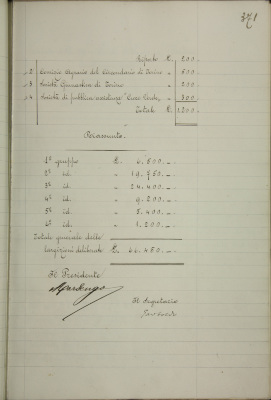 371
Riporto £ 200
2 Comizio Agrario del Circondario di Torino " 500
3 Società Ginnastica di Torino " 200
4 Società di pubblica assistenza Croce Verde " 300
Totale £ 1200
Riassunto.
1° gruppo £. 6.500.-
2° id. " 19.750.-
3° id. " 24.400.-
4° id. " 9.200.-
5° id. " 5.400.-
6° id. " 1.200.-
Totale generale delle
largizioni deliberate £. 66.450.-
Il Presidente
Il Segretario